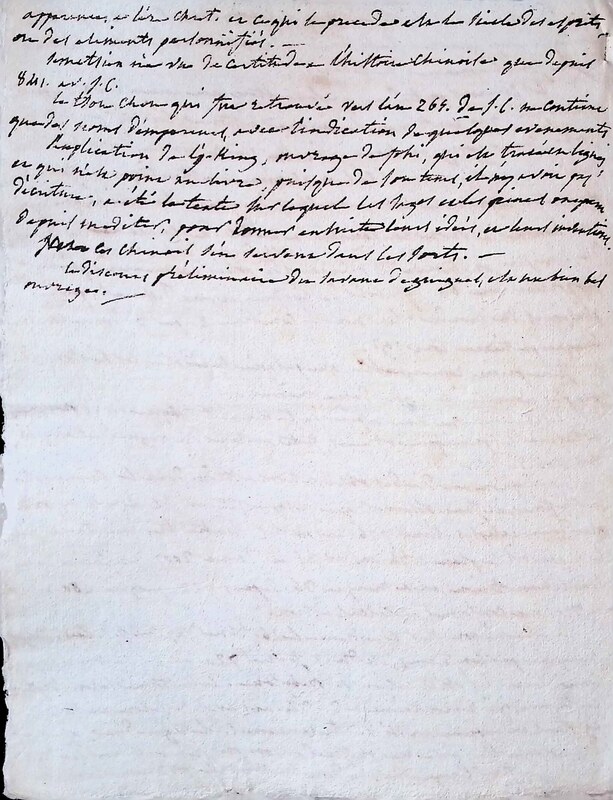 apparence, a l'ère chret. et ce qui le precede est le siecle des esprits
ou des elements personnifiés. —
de certitude a l'histoire chinoise que depuis
841. av. J.C.
Le Tsou Chou qui fut retrouvé vers l'an 265. de J.C. ne contient
que des noms d'empereurs, avec l'indication de quelques evenements
l'explication de l'y-King, ouvrage de fohi, qui est tracé en lignes
et qui n'est point un livre, puisque de son tems, il n'y avoit pas
d'écriture, a été le texte sur lequel les sages et les princes ont
depuis mediter, pour donner ensuite leurs idées, et leurs
les chinois s'en servent dans les sorts. —
Le discours preliminaire du savant de guignes, est un bien bel
ouvrage. —